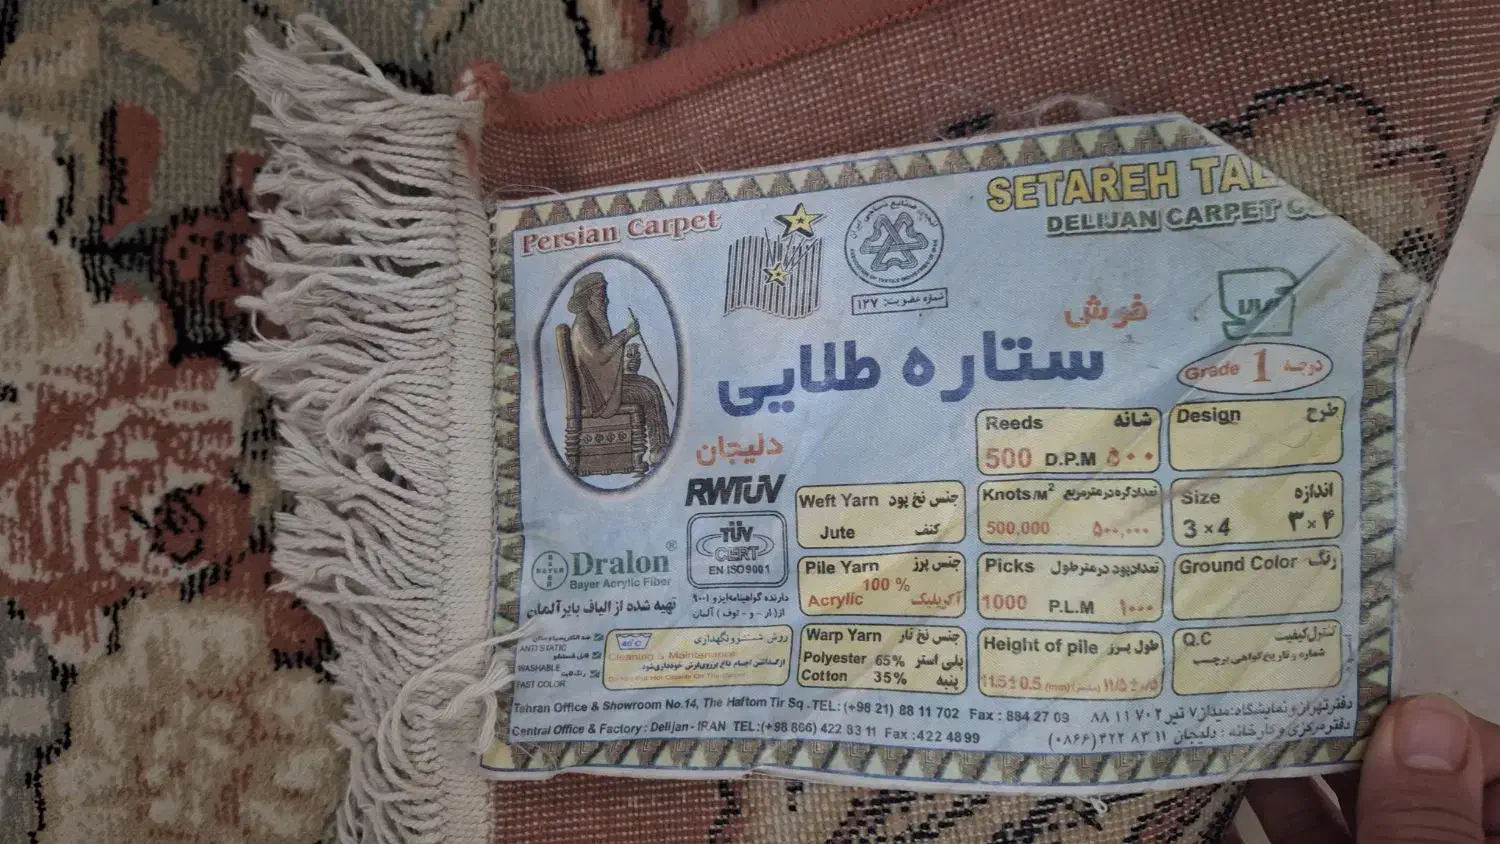 Persian Carpet
SETAREH
DELIJAN CARPET
انجمن صنایع نساجی ایران
ASSOCIATION OF TEXTILE INDUSTRIES OF IRAN
شماره عضویت: ۱۲۷
فرش
ستاره طلایی
دلیجان
Grade 1 درجه
RWTÜV
TÜV
CERT
EN ISO 9001
دارنده گواهینامه ایزو ۹۰۰۱
از (ار - و - توف) آلمان
BAYER
Dralon®
Bayer Acrylic Fiber
تهیه شده از الیاف بایر آلمان
ANTI STATIC
WASHABLE
FAST COLOR
40°C
روش شستشو و نگهداری
Cleaning & Maintenance
از گذاشتن اجسام داغ بر روی فرش خودداری شود.
Do Not Put Hot Objects On The Carpet
Weft Yarn جنس نخ پود
Jute کنف
Pile Yarn جنس پرز
100 %
Acrylic آکریلیک
Warp Yarn جنس نخ تار
Polyester 65% پلی استر
Cotton 35% پنبه
Reeds شانه
500 D.P.M ۵۰۰
Knots/M² تعداد گره در متر مربع
500,000 ۵۰۰,۰۰۰
Picks تعداد پود در متر طول
1000 P.L.M ۱۰۰۰
Height of pile طول پرز
11.5±0.5 (mm) (میلیمتر) ۱۱/۵±۰/۵
Design طرح
Size اندازه
3×4 ۳×۴
Ground Color رنگ
Q.C کنترل کیفیت
شماره و تاریخ گواهی برچسب
Tehran Office & Showroom No.14, The Haftom Tir Sq - TEL: (+98 21) 88 11 702 Fax : 884 27 09 دفتر تهران و نمایشگاه: میدان ۷ تیر ۷۰۲ ۱۱ ۸۸
Central Office & Factory : Delijan - IRAN TEL:(+98 866) 422 83 11 Fax :422 48 99 دفتر مرکزی و کارخانه : دلیجان ۱۱ ۸۳ ۴۲۲ (۰۸۶۶)